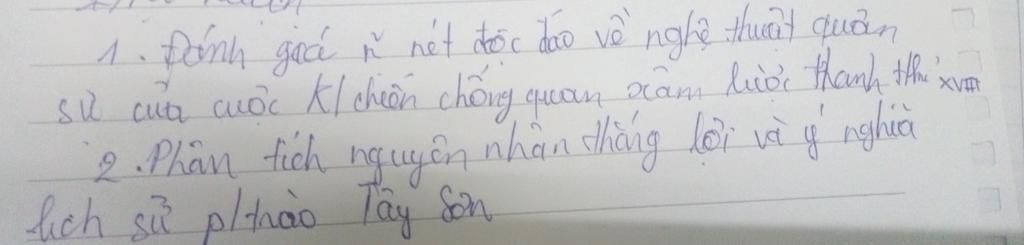 1. Đánh gací ~ nét độc đáo về nghệ thuật quân
sử của cuộc k/chiến chống quan xâm lược thanh thế' XVIII
2. Phân tích nguyên nhân thắng lợi và ý nghĩa
lịch sử p/trào Tây Sơn